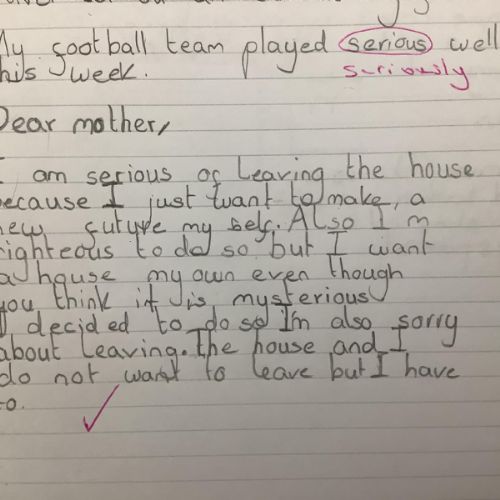 My football team played serious well
this week. seriously
Dear mother,
I am serious of leaving the house
because I just want to make, a
new future my self. Also I m
righteous to do so but I want
a house my own even though
you think it is mysterious
I decided to do so I'm also sorry
about leaving. the house and I
do not want to leave but I have
to.